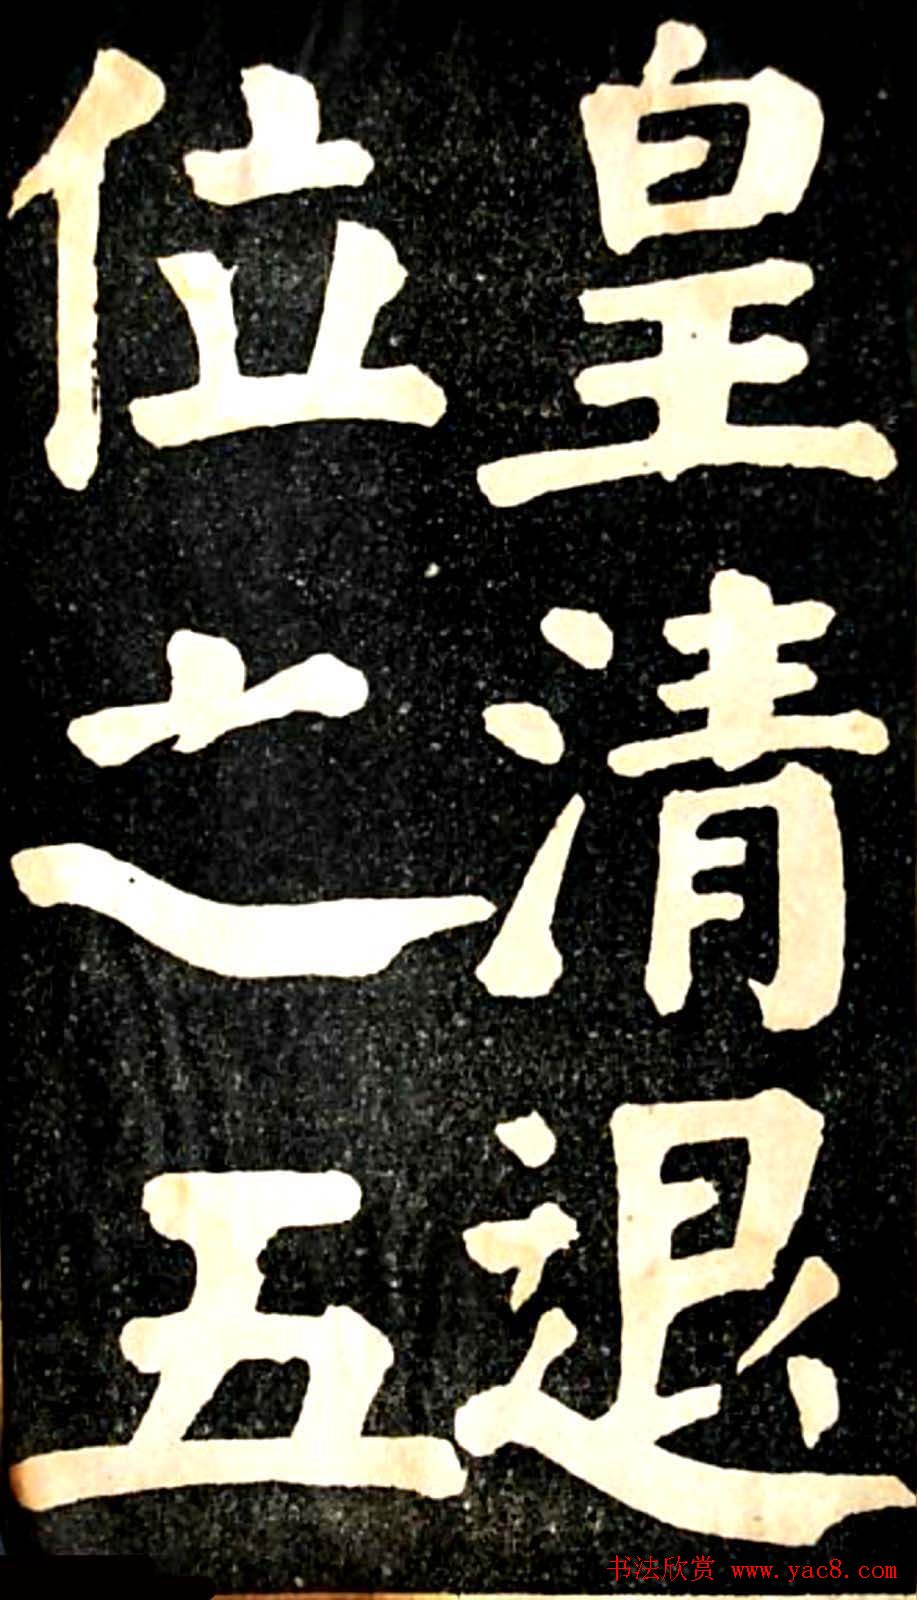 皇清退
位之五
书法欣赏 www.yac8.com